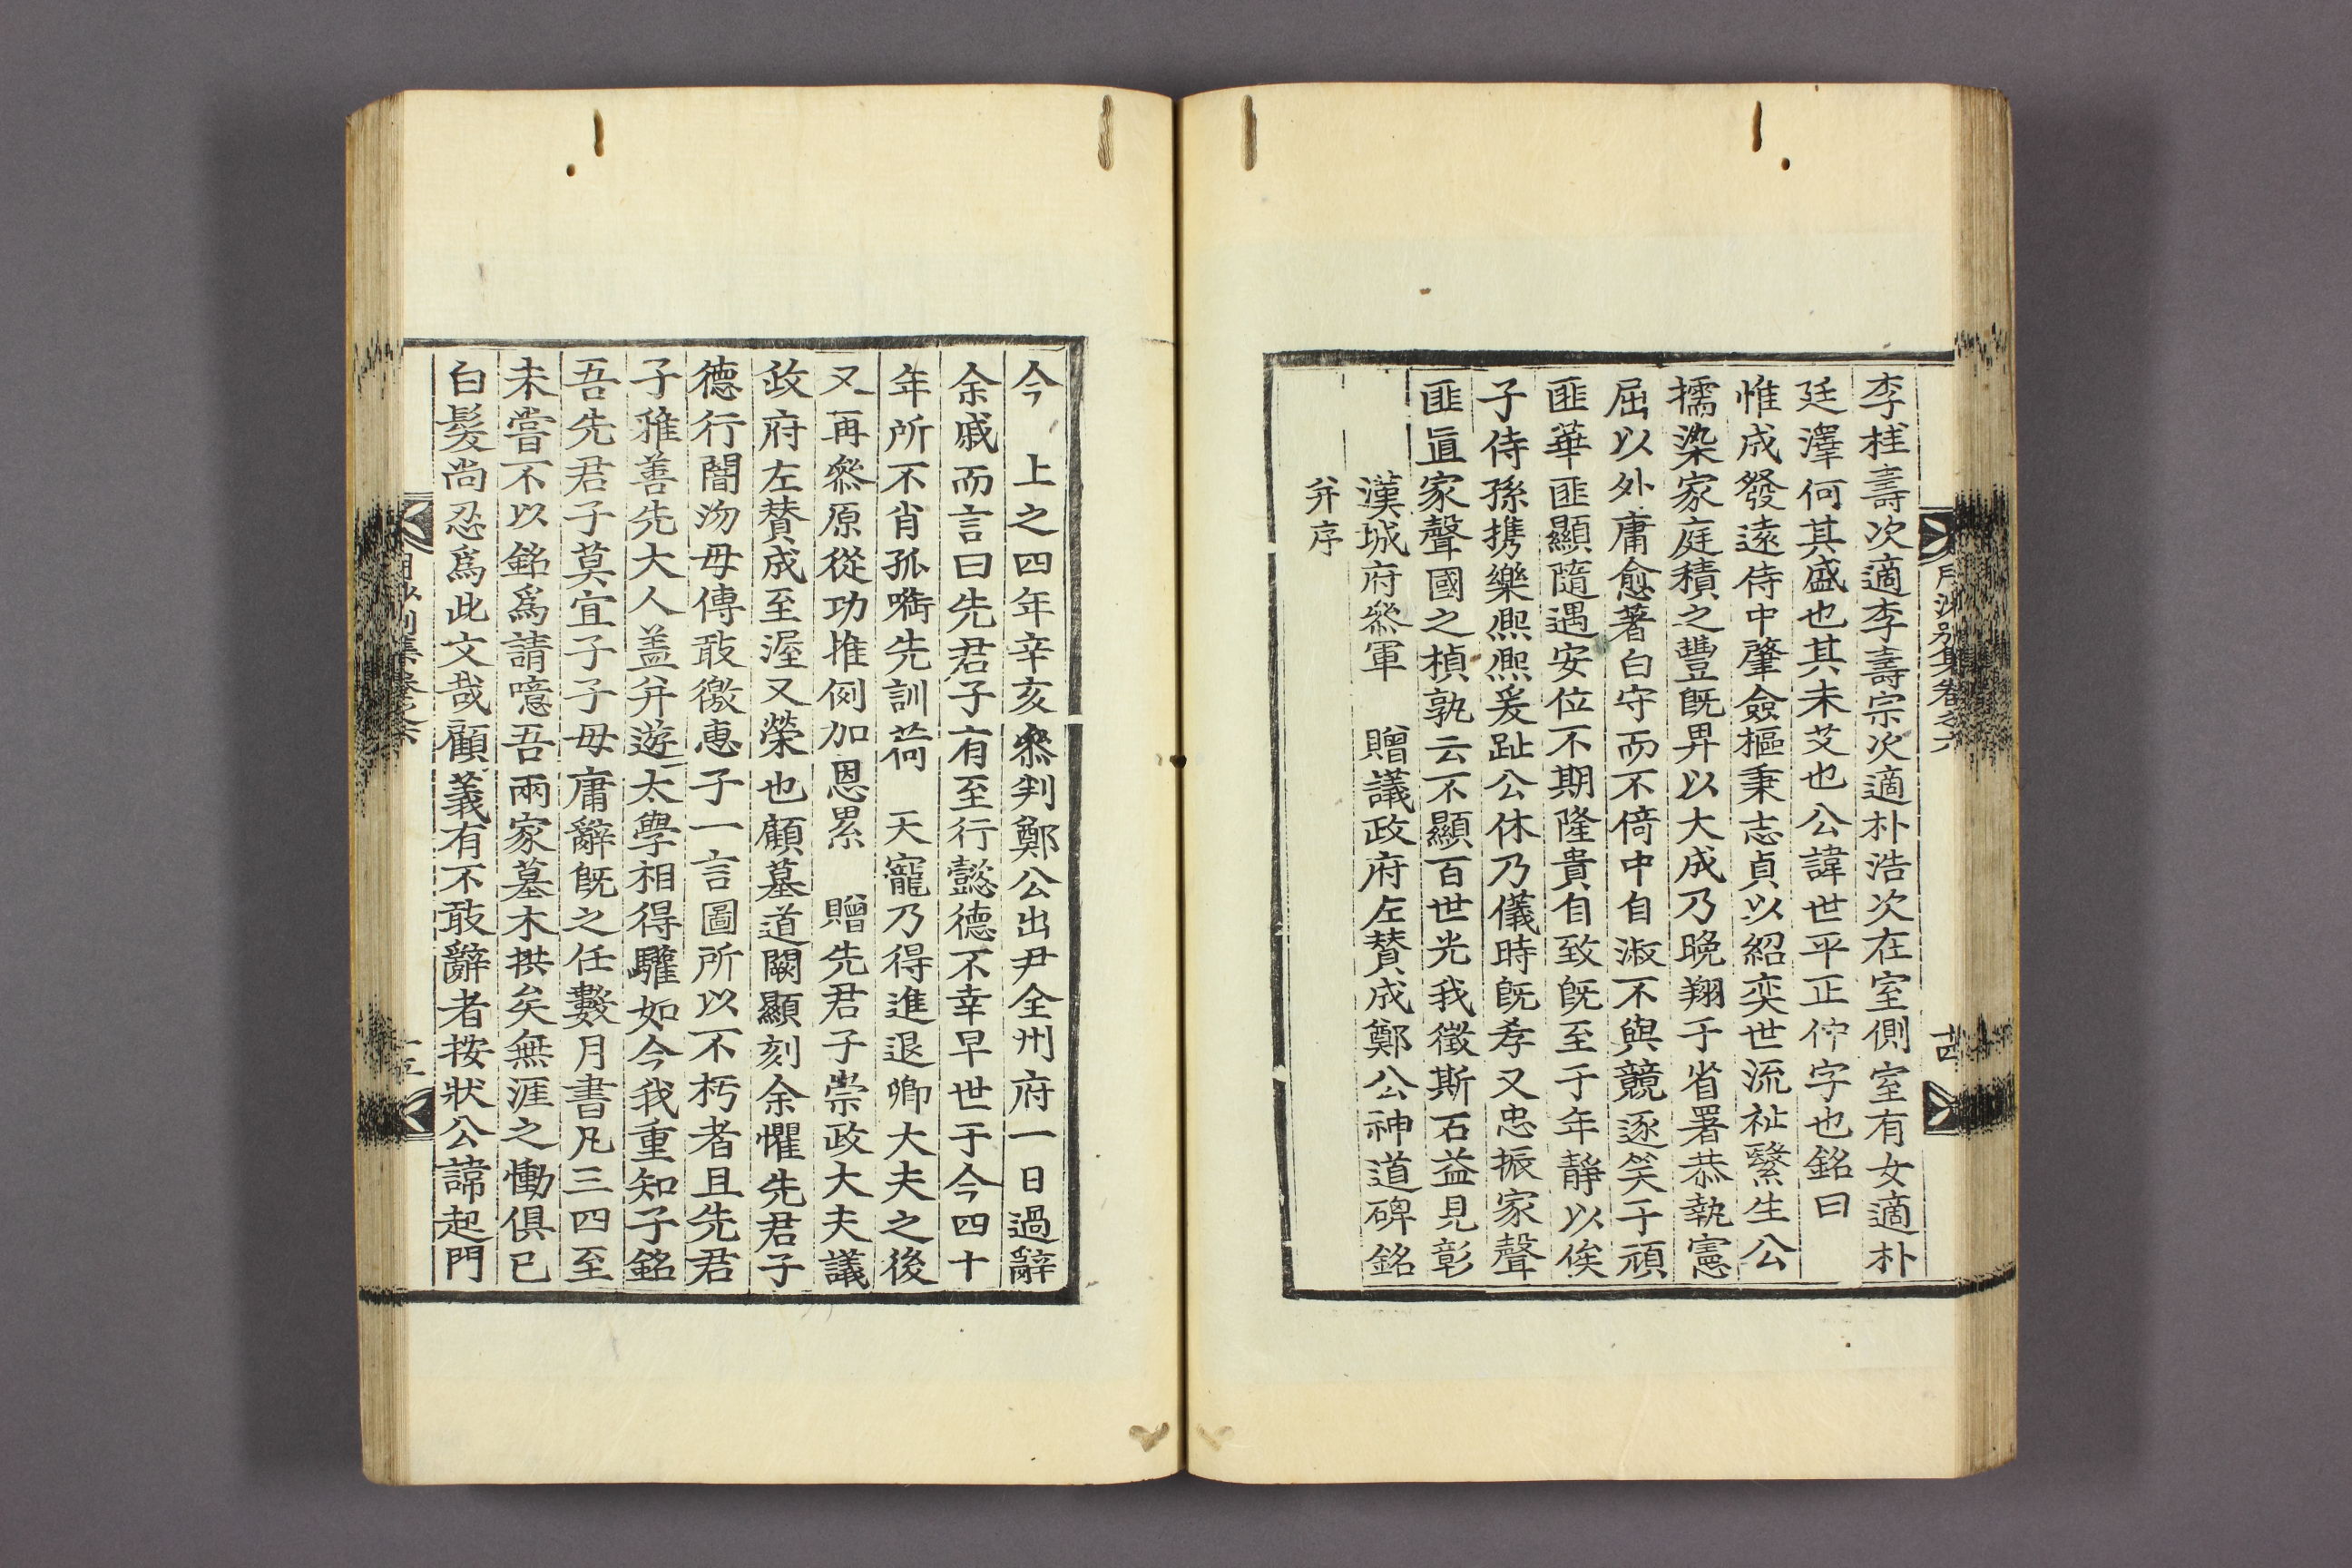 月沙別集卷之六
十四
李桂壽次適李壽宗次適朴浩次在室側室有女適朴
廷澤何其盛也其未艾也公諱世平正仲字也銘曰
惟成發遠侍中肇僉樞秉志貞以紹奕世流祉繄生公
擩染家庭積之豐旣畀以大成乃晩翔于省署恭執憲
屈以外庸愈著白守而不倚中自淑不與競逐笑于頑
匪華匪顯隨遇安位不期隆貴自致旣至于年靜以俟
子侍孫携樂熈熈爰趾公休乃儀時旣孝又忠振家聲
匪直家聲國之楨孰云不顯百世光我徵斯石益見彰
漢城府叅軍 贈議政府左賛成鄭公神道碑銘
幷序
今 上之四年辛亥叅判鄭公出尹全州府一日過辭
余戚而言曰先君子有至行懿德不幸早世于今四十
年所不肖孤㘅先訓荷 天寵乃得進退卿大夫之後
又再叅原從功推例加恩累 贈先君子崇政大夫議
政府左賛成至渥又榮也顧墓道闕顯刻余懼先君子
德行闇沕毋傳敢徼惠子一言圖所以不朽者且先君
子雅善先大人盖幷遊太學相得驩如今我重知子銘
吾先君子莫宜子子毋庸辭旣之任數月書凡三四至
未嘗不以銘爲請噫吾兩家墓木拱矣無涯之慟俱已
白髮尚忍爲此文哉顧義有不敢辭者按狀公諱起門
月沙別集卷之六
十五